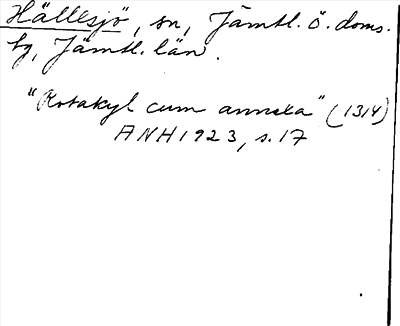 Hällesjö, sn, Jämtl. ö. doms.
sg, Jämtl. län.
"Rotakyl cum annexa" (1314)
ANH 1923, s. 17